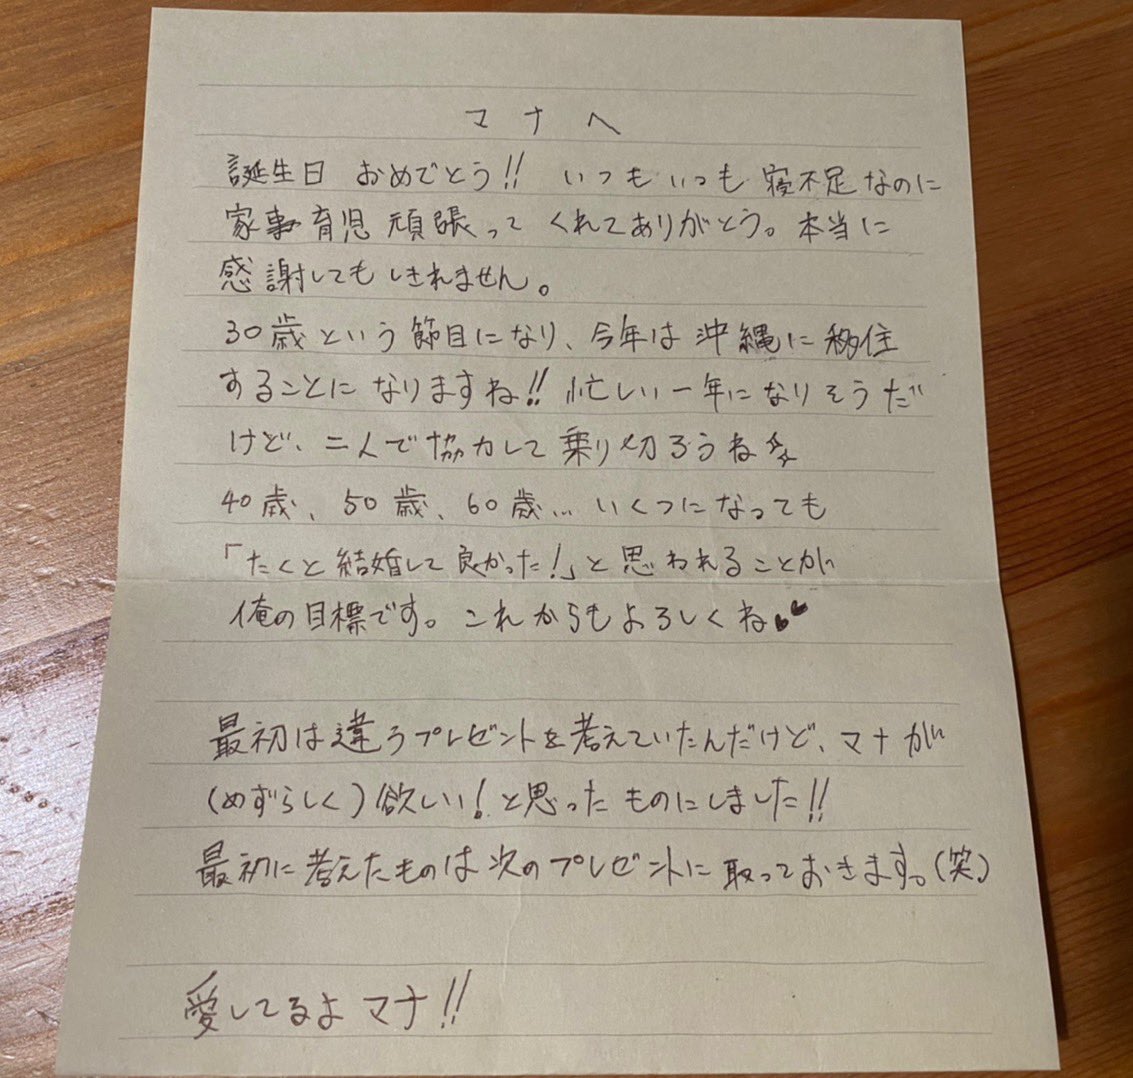 マナへ
誕生日 おめでとう!! いつもいつも寝不足なのに
家事育児頑張ってくれてありがとう。本当に
感謝してもしきれません。
30歳という節目になり、今年は沖縄に移住
することになりますね!! 忙しい一年になりそうだ
けど、二人で協力して乗り切ろうね
40歳、50歳、60歳… いくつになっても
「たくと結婚して良かった!」と思われることが
俺の目標です。これからもよろしくね
最初は違うプレゼントを考えていたんだけど、マナが
(めずらしく)欲しい!と思ったものにしました!!
最初に考えたものは次のプレゼントに取っておきます。(笑)
愛してるよマナ!!